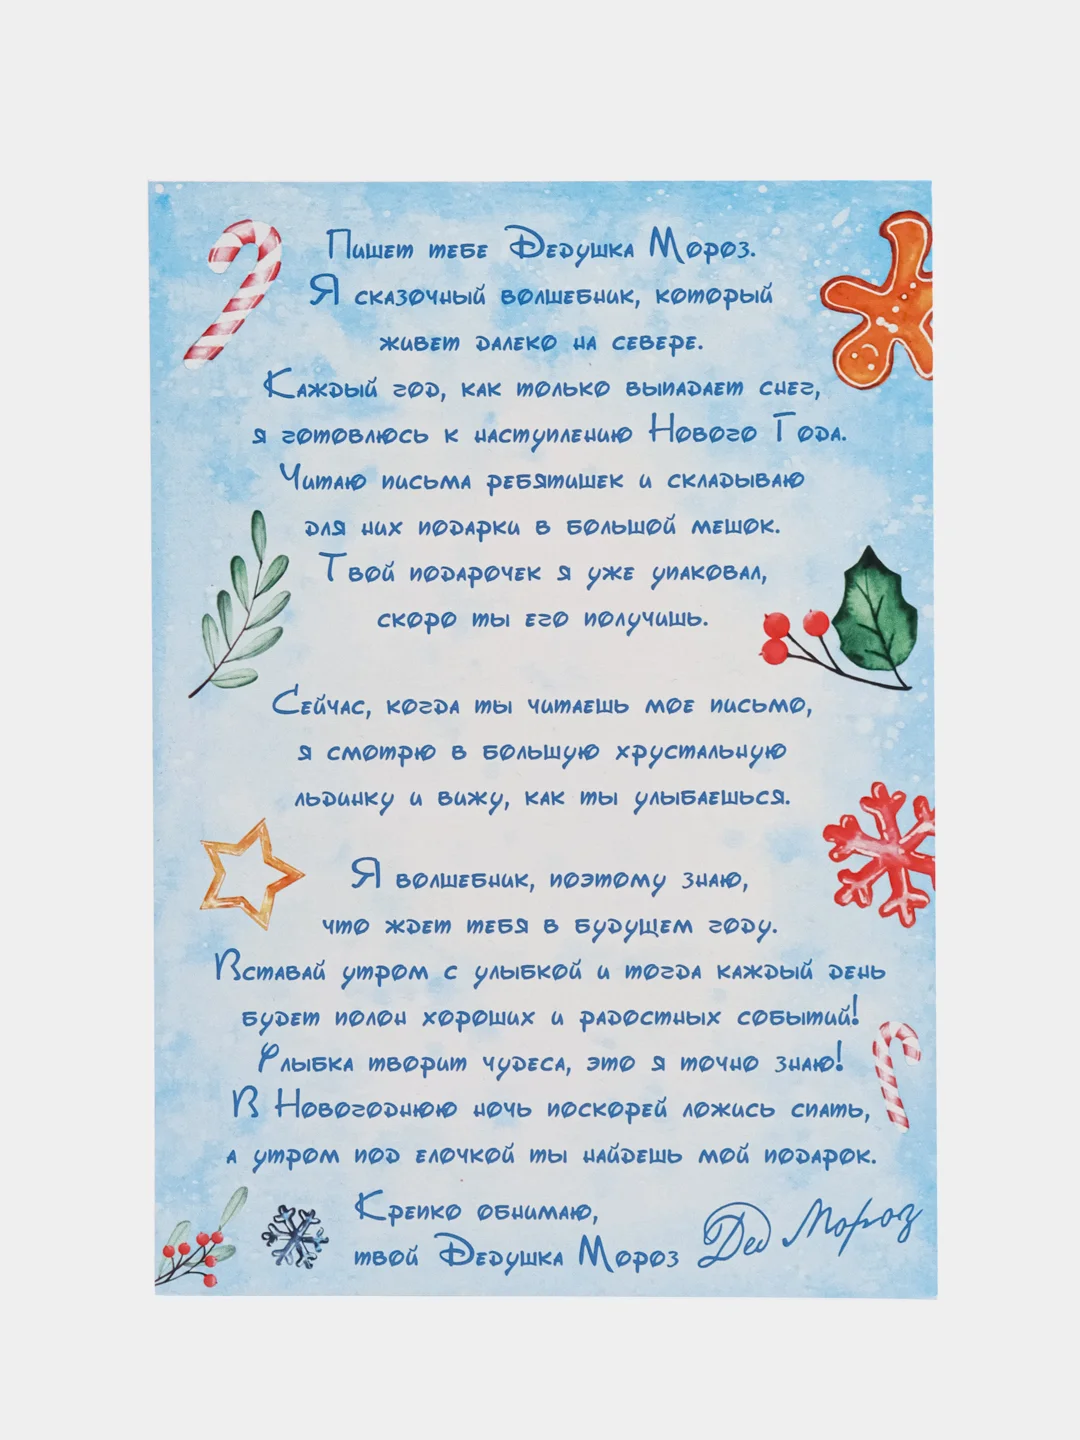 Пишет тебе Дедушка Мороз.
Я сказочный волшебник, который
живет далеко на севере.
Каждый год, как только выпадает снег,
я готовлюсь к наступлению Нового Года.
Читаю письма ребятишек и складываю
для них подарки в большой мешок.
Твой подарочек я уже упаковал,
скоро ты его получишь.
Сейчас, когда ты читаешь мое письмо,
я смотрю в большую хрустальную
льдинку и вижу, как ты улыбаешься.
Я волшебник, поэтому знаю,
что ждет тебя в будущем году.
Вставай утром с улыбкой и тогда каждый день
будет полон хороших и радостных событий!
Улыбка творит чудеса, это я точно знаю!
В Новогоднюю ночь поскорей ложись спать,
а утром под елочкой ты найдешь мой подарок.
Крепко обнимаю,
твой Дедушка Мороз
Дед Мороз